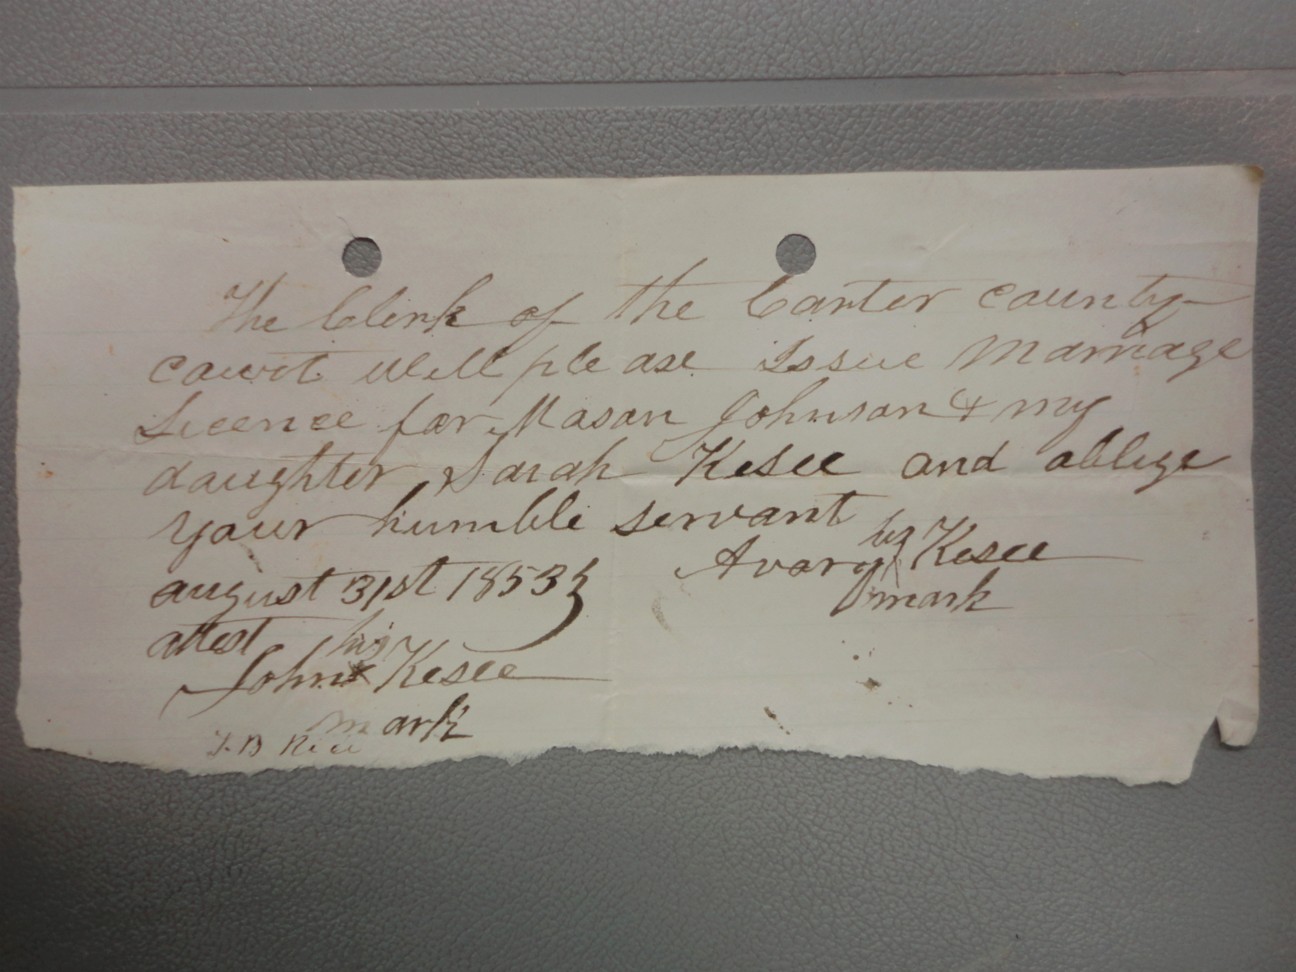 The Clerk of the Carter county
cawrt will please Issue Marriage
Licence for Mason Johnson & my
daughter Sarah Kesee and oblige
your humble servant
august 31st 1853 Avary his Kesee
mark
attest his
John x Kesee
mark
J. B Rice